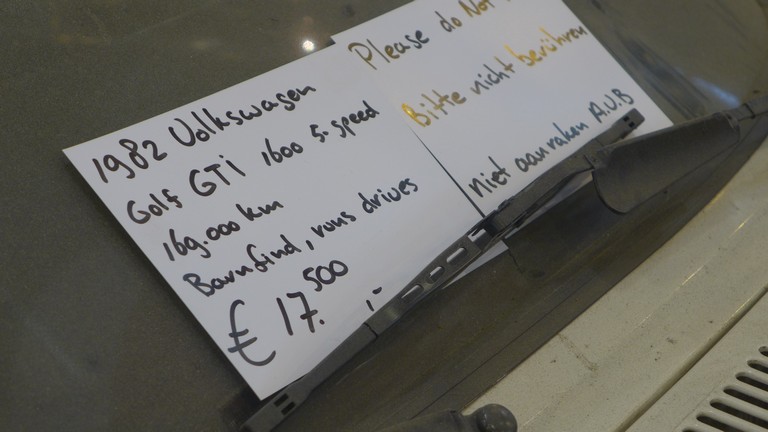 1982 Volkswagen
Golf GTi 1600 5-speed
169.000 km
Barnfind, runs drives
€ 17.500,-
Please do Not
Bitte nicht berühren
niet aanraken A.U.B